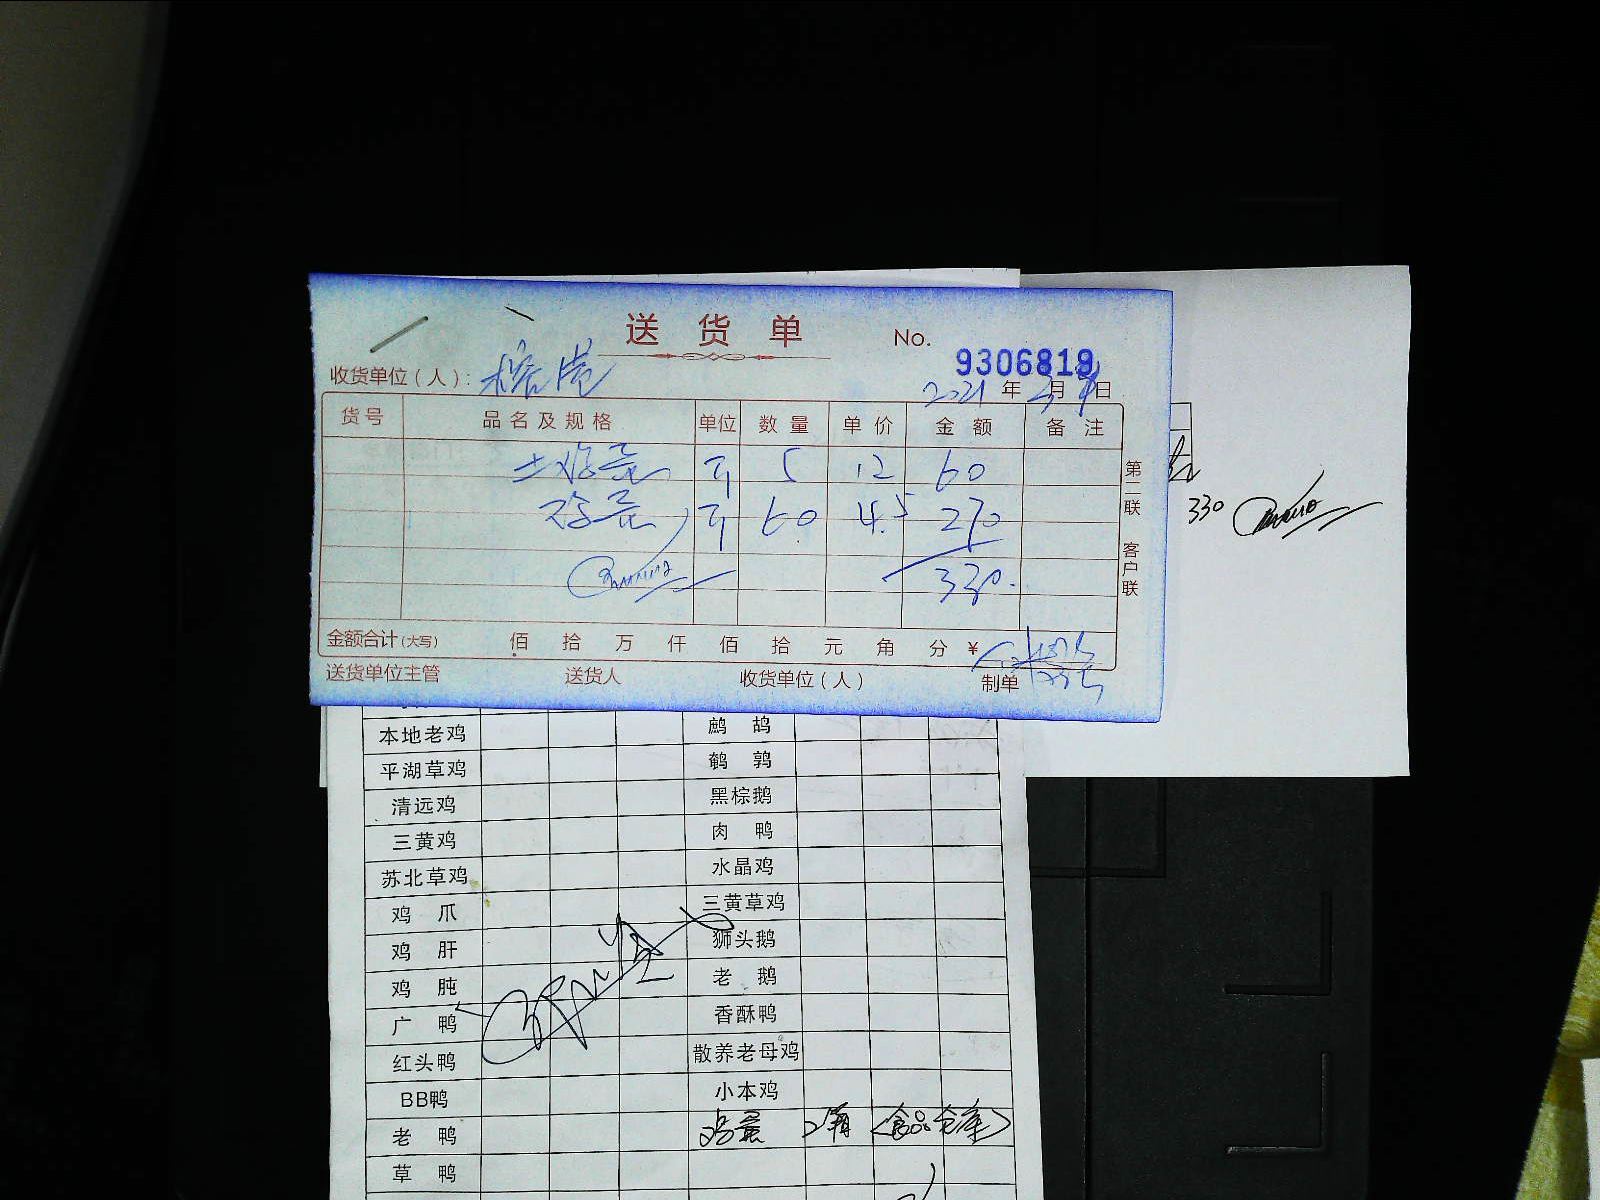 送货单 No. 9306819
收货单位（人）：榕港
2021 年 3 月 9 日
货号 品名及规格 单位 数量 单价 金额 备注
土鸡蛋 斤 5 12 60
鸡蛋 斤 60 4.5 270
330
330
金额合计(大写) 佰 拾 万 仟 佰 拾 元 角 分 ¥
送货单位主管 送货人 收货单位（人） 制单
第二联 客户联
本地老鸡 鹧鸪
平湖草鸡 鹌鹑
清远鸡 黑棕鹅
三黄鸡 肉鸭
苏北草鸡 水晶鸡
鸡爪 三黄草鸡
鸡肝 狮头鹅
鸡肫 老鹅
广鸭 香酥鸭
红头鸭 散养老母鸡
BB鸭 小本鸡
老鸭 鸡蛋 2箱 (食品仓库)
草鸭